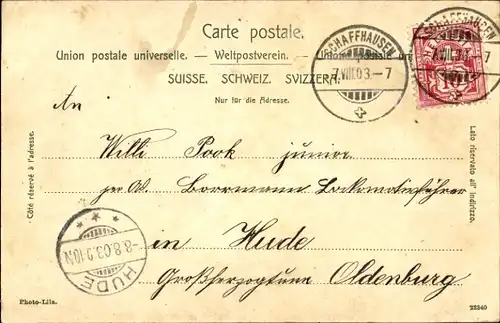 Carte postale.
Union postale universelle. — Weltpostverein. — Unione postale
SUISSE. SCHWEIZ. SVIZZERA.
Nur für die Adresse.
SCHAFFHAUSEN
7.VIII.03.-7
SCHAFFHAUSEN
An
Willi Pook junior.
per Ad. Borrmann Lokomotivführer
in Hude
Großherzogtum Oldenburg
Côté réservé à l'adresse.
Lato riservato all' indirizzo.
8.8.03.9-10N
HUDE
Photo-Lila.
22340